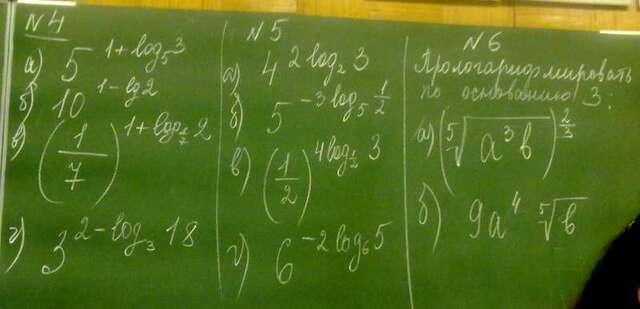 N 4
а) 5^{1+log_5 3}
б) 10^{1-lg2}
в) (1/7)^{1+log_{1/7} 2}
г) 3^{2-log_3 18}
N 5
а) 4^{2log_2 3}
б) 5^{-3log_5 1/2}
в) (1/2)^{4log_{1/2} 3}
г) 6^{-2log_6 5}
N 6
Прологарифмировать
по основанию 3:
а) (⁵√(a³b))^{2/3}
б) 9a⁴ ⁵√b